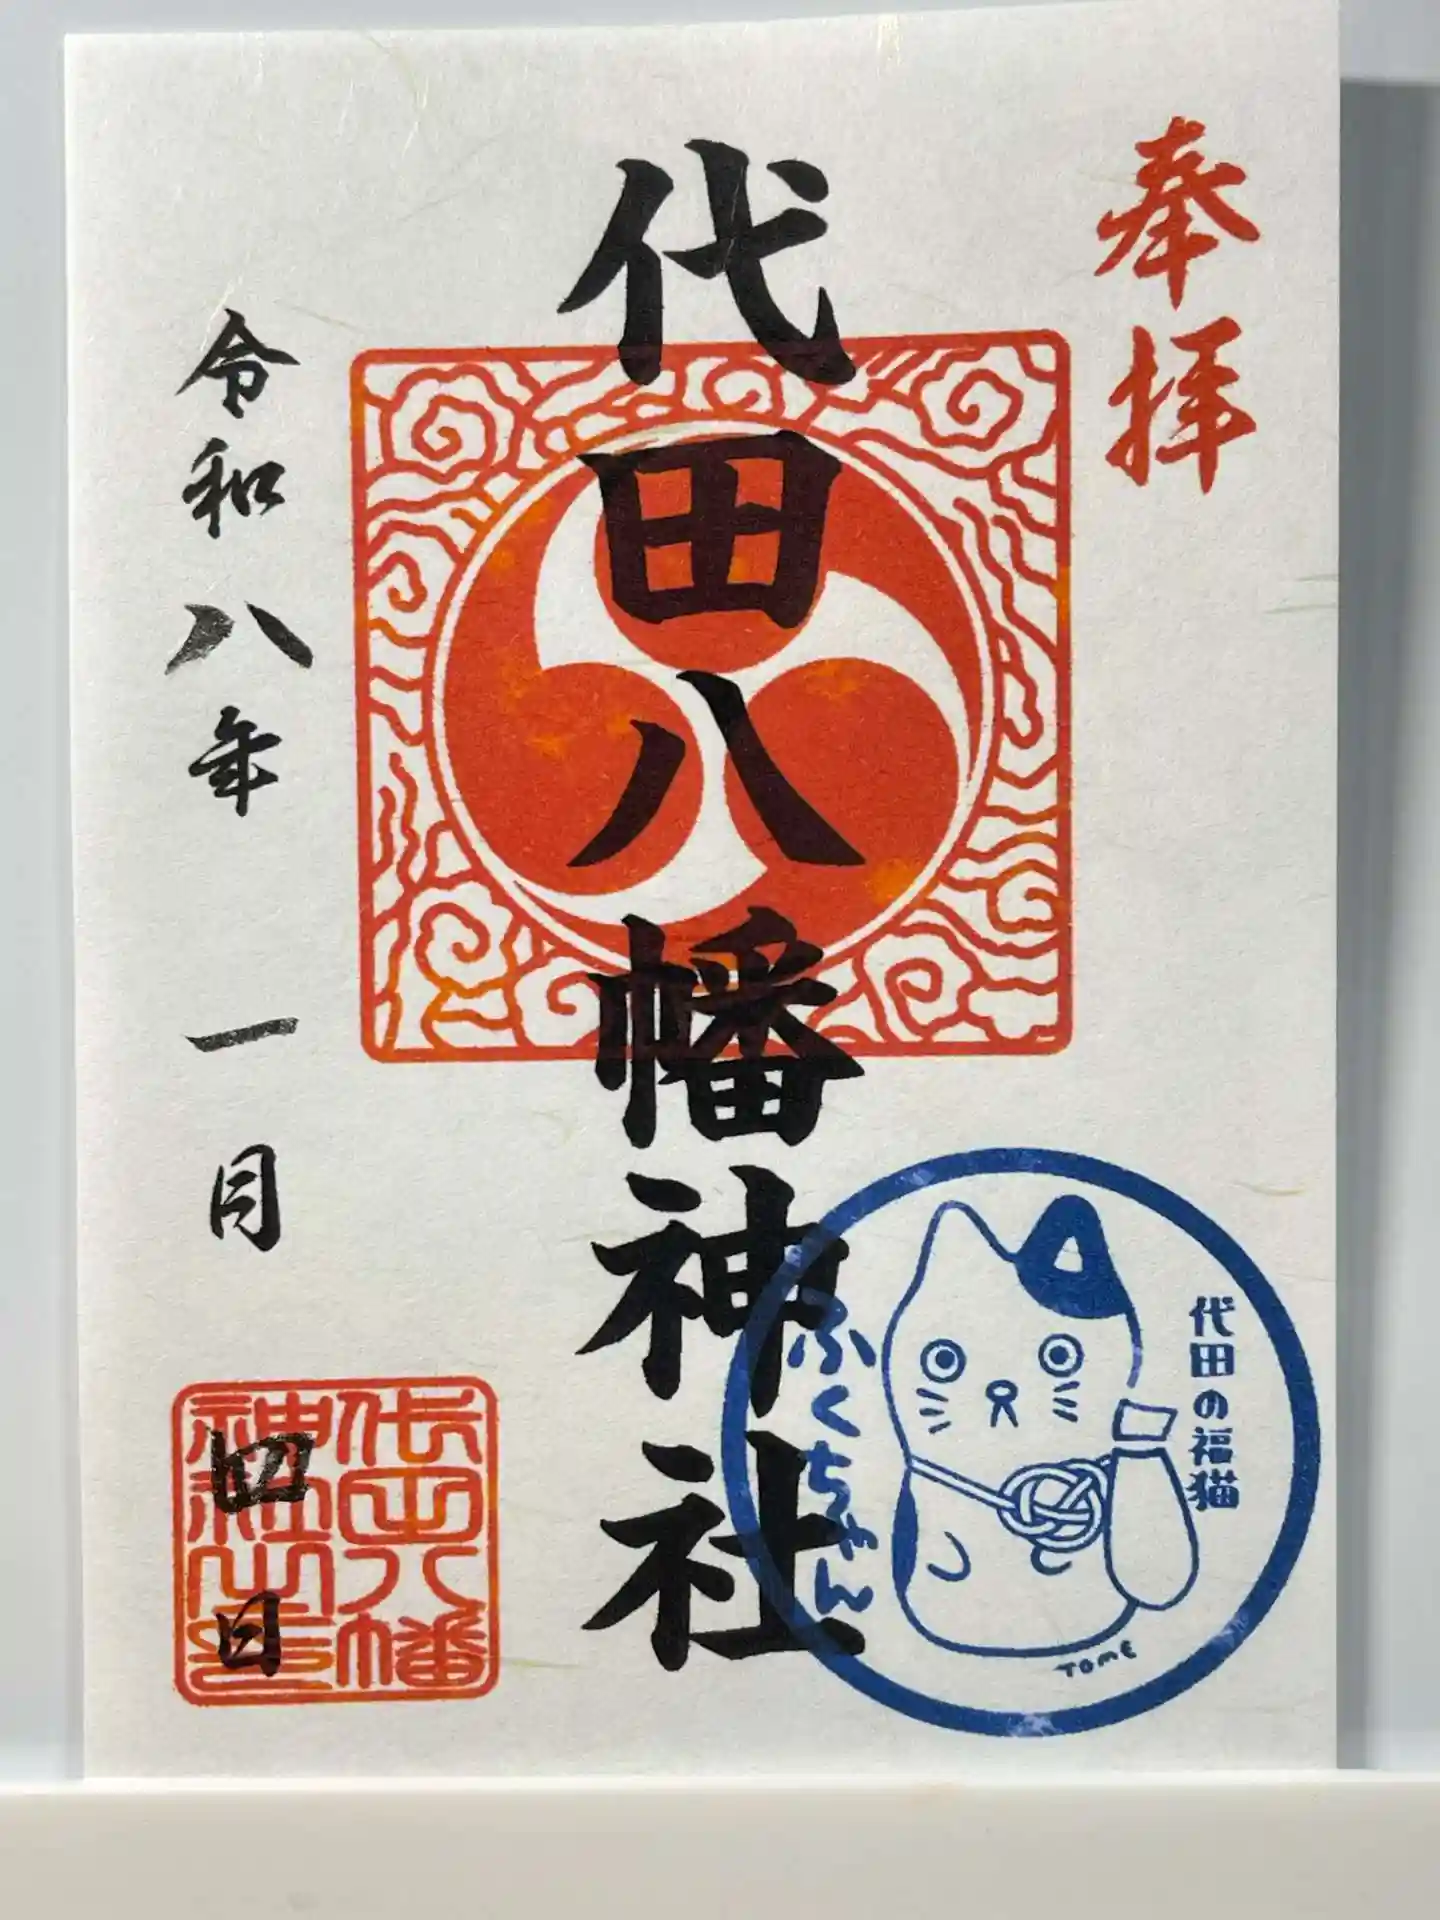 奉拝
代田八幡神社
令和八年 一月 四日
代田八幡
神社之印
代田の福猫
ふくちゃん
TOME